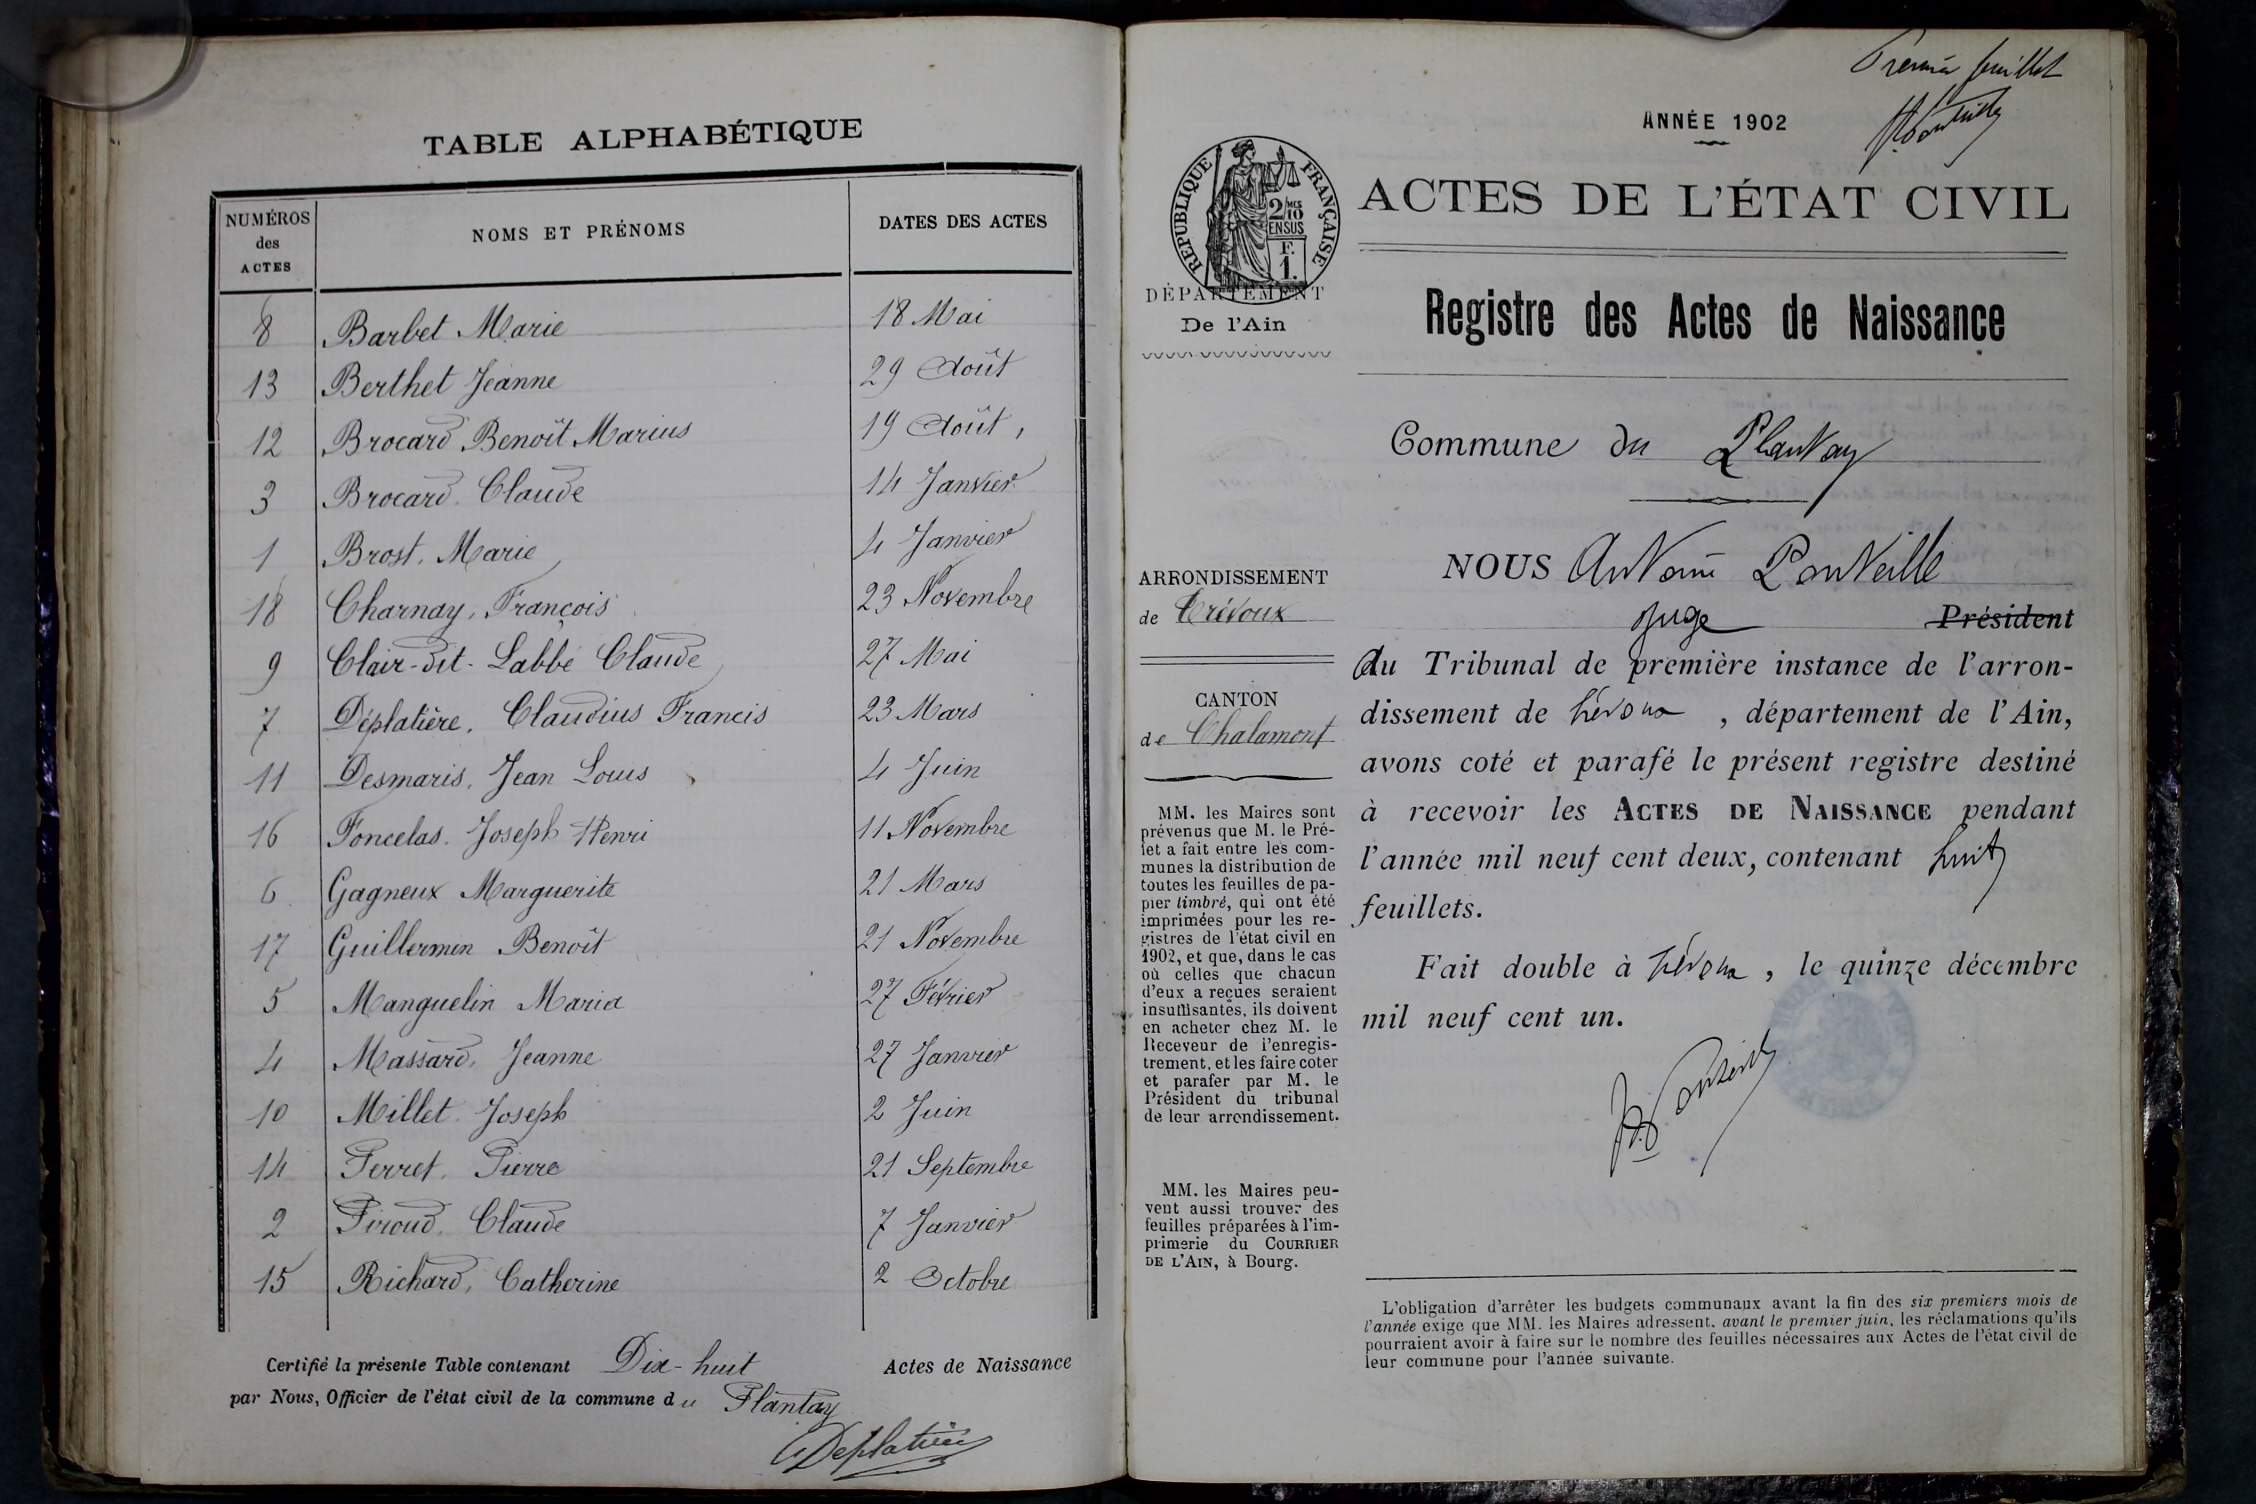 TABLE ALPHABÉTIQUE
NUMÉROS des ACTES NOMS ET PRÉNOMS DATES DES ACTES
8 Barbet Marie 18 Mai
13 Berthet Jeanne 29 Août
12 Brocard Benoît Marius 19 Août,
3 Brocard Claude 14 Janvier
1 Brost, Marie 4 Janvier
18 Charnay, François 23 Novembre
9 Clair-dit-Labbé Claude 27 Mai
7 Déplatière, Claudius Francis 23 Mars
11 Desmaris, Jean Louis 4 Juin
16 Foncelas, Joseph Henri 11 Novembre
6 Gagneux Marguerite 21 Mars
17 Guillermin Benoît 21 Novembre
5 Manguelin Maria 27 Février
4 Massard, Jeanne 27 Janvier
10 Millet Joseph 2 Juin
14 Perret, Pierre 21 Septembre
2 Piroud, Claude 7 Janvier
15 Richard, Catherine 2 Octobre
Certifié la présente Table contenant Dix-huit Actes de Naissance
par Nous, Officier de l'état civil de la commune du Plantay
Deplatière
Premier feuillet
ANNÉE 1902
ACTES DE L'ÉTAT CIVIL
RÉPUBLIQUE FRANÇAISE
2/10 MES
EN SUS
F.
1.
DÉPARTEMENT
De l'Ain
Registre des Actes de Naissance
Commune du Plantay
ARRONDISSEMENT
de Trévoux
CANTON
de Chalamont
MM. les Maires sont
prévenus que M. le Pré-
fet a fait entre les com-
munes la distribution de
toutes les feuilles de pa-
pier timbré, qui ont été
imprimées pour les re-
gistres de l'état civil en
1902, et que, dans le cas
où celles que chacun
d'eux a reçues seraient
insuffisantes, ils doivent
en acheter chez M. le
Receveur de l'enregis-
trement, et les faire coter
et parafer par M. le
Président du tribunal
de leur arrondissement.
MM. les Maires peu-
vent aussi trouver des
feuilles préparées à l'im-
primerie du COURRIER
DE L'AIN, à Bourg.
NOUS Antoine Ponteille
Juge Président
du Tribunal de première instance de l'arron-
dissement de Trévoux, département de l'Ain,
avons coté et parafé le présent registre destiné
à recevoir les ACTES DE NAISSANCE pendant
l'année mil neuf cent deux, contenant huit
feuillets.
Fait double à Trévoux, le quinze décembre
mil neuf cent un.
L'obligation d'arrêter les budgets communaux avant la fin des six premiers mois de
l'année exige que MM. les Maires adressent, avant le premier juin, les réclamations qu'ils
pourraient avoir à faire sur le nombre des feuilles nécessaires aux Actes de l'état civil de
leur commune pour l'année suivante.